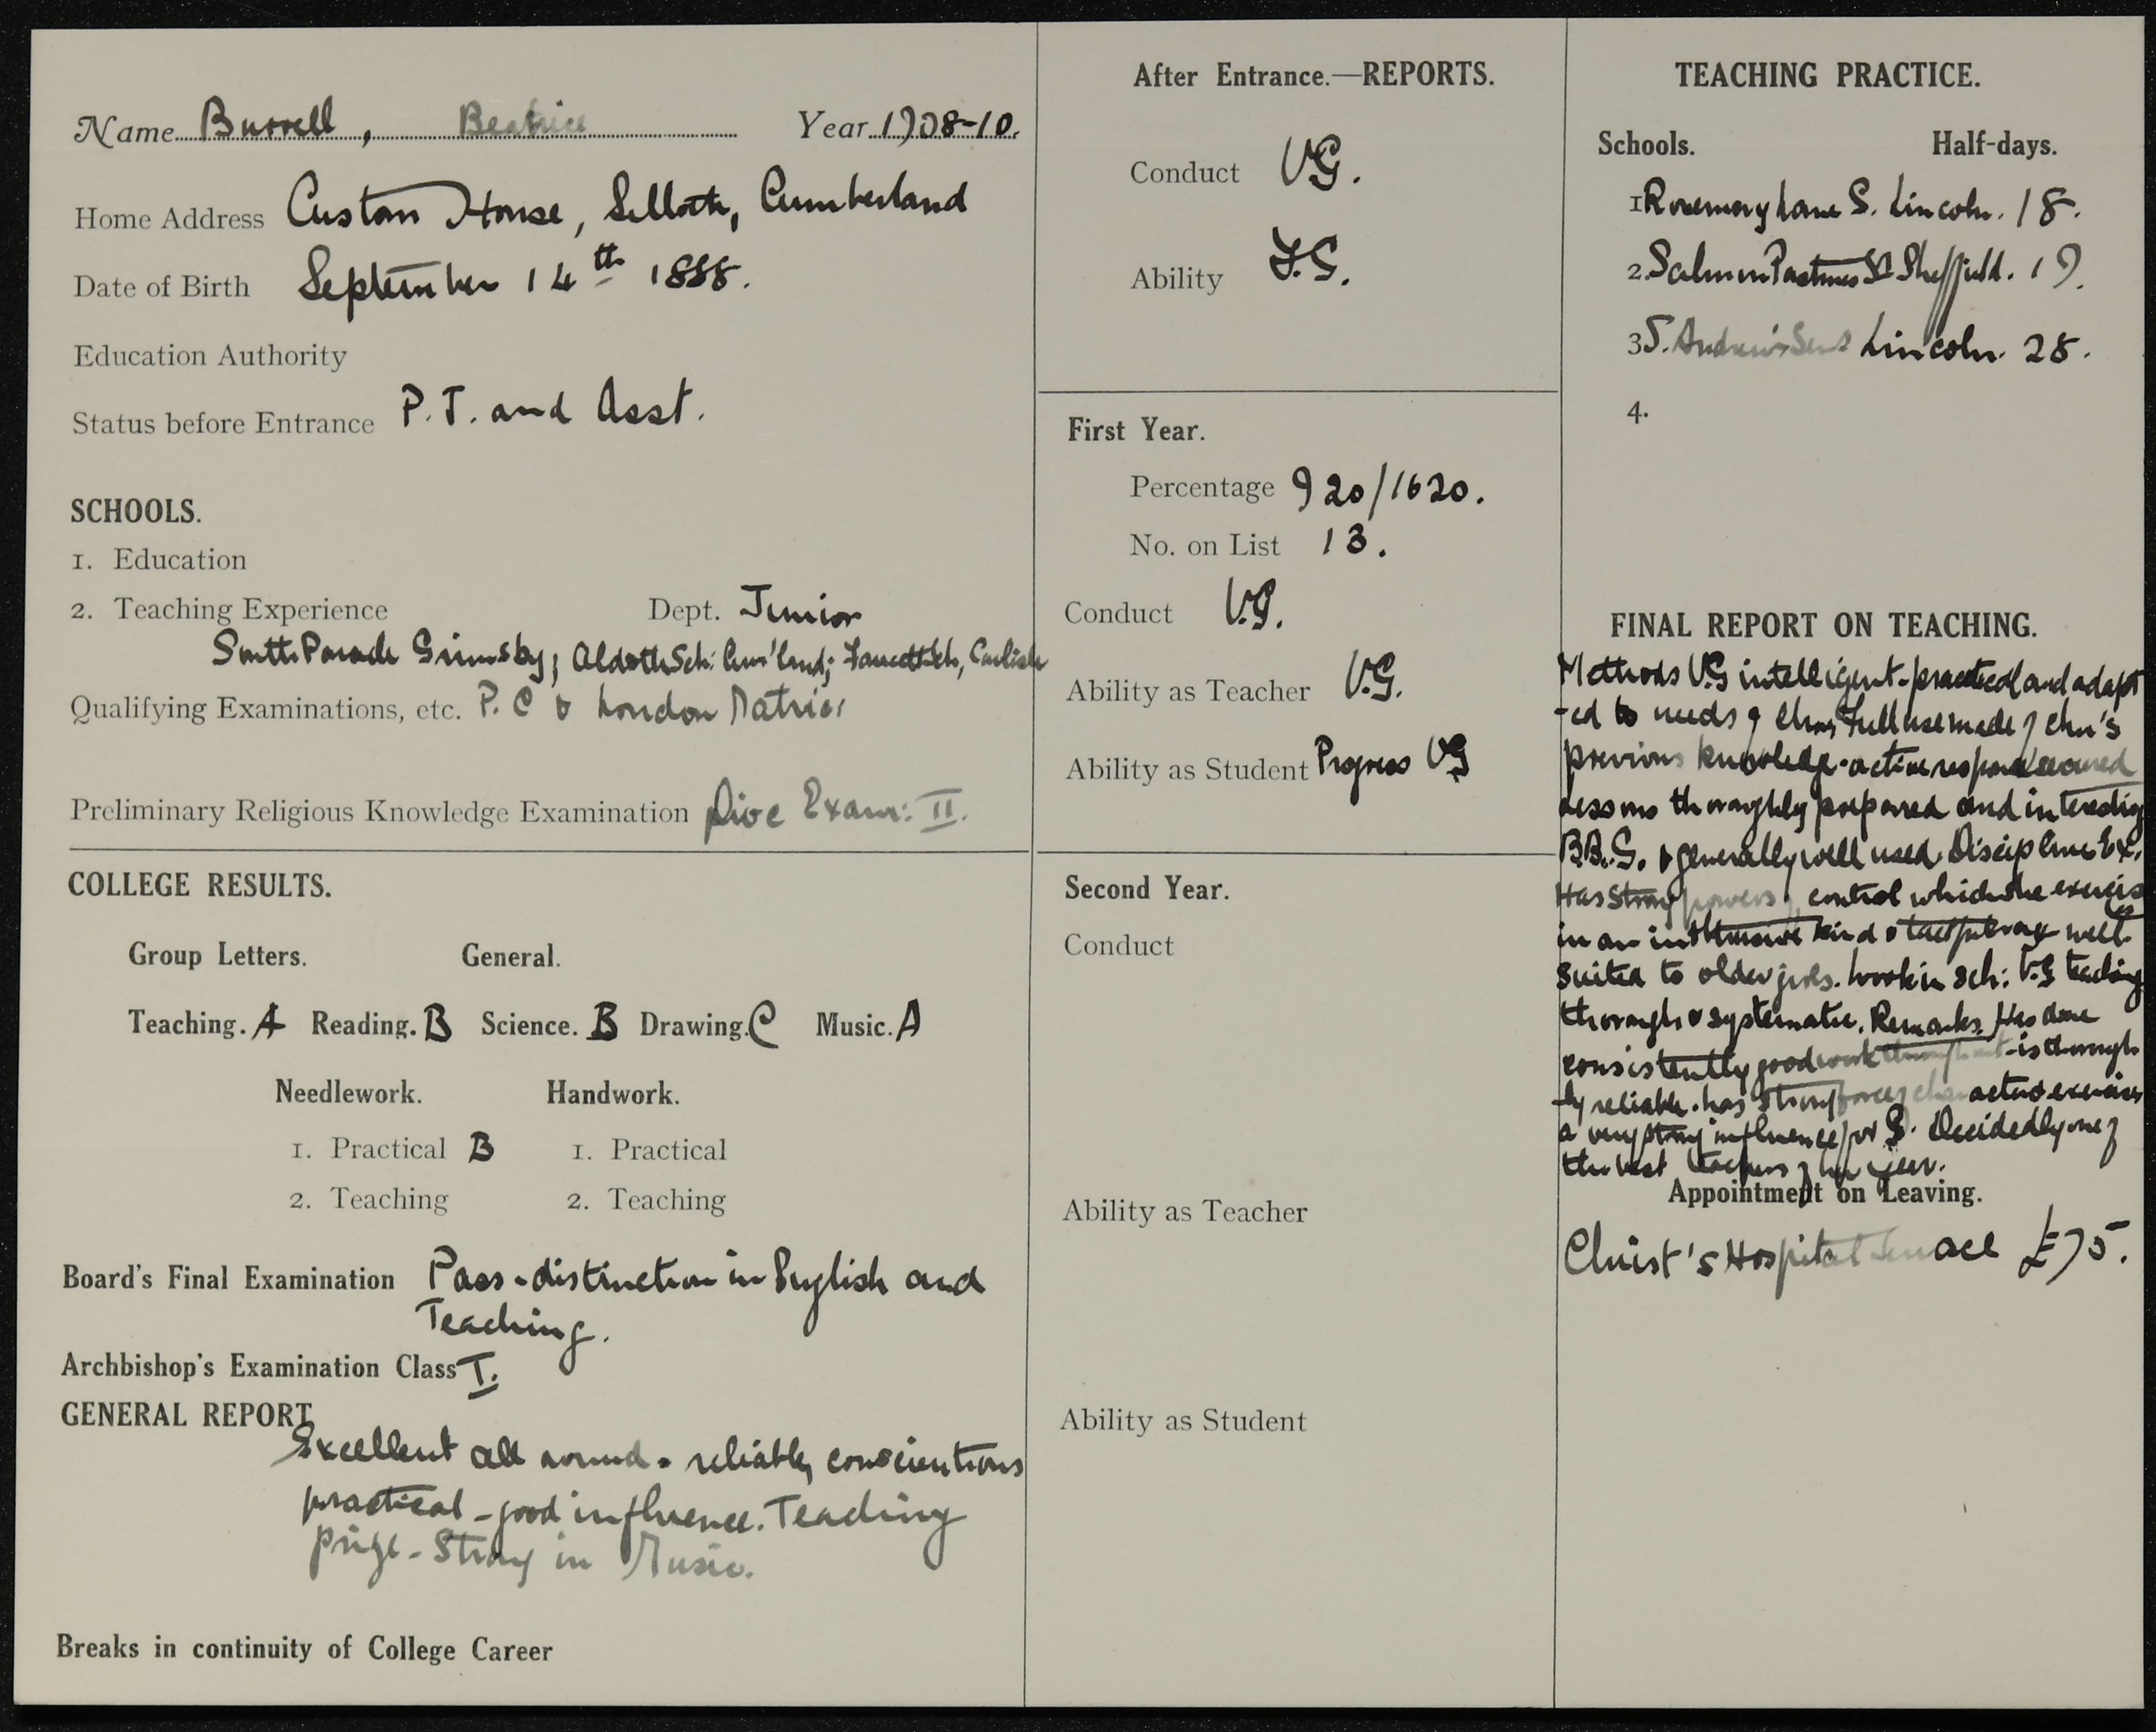 Name Burrell, Beatrice Year 1908-10.
Home Address Custom House, Silloth, Cumberland
Date of Birth September 14th 1888.
Education Authority
Status before Entrance P.T. and Asst.
SCHOOLS.
1. Education
2. Teaching Experience Dept. Junior
South Parade Grimsby; Aldoth Sch: Cum'land; Fawcett Sch, Carlisle
Qualifying Examinations, etc. P.C & London Matric:
Preliminary Religious Knowledge Examination Dioc Exam: II.
COLLEGE RESULTS.
Group Letters. General.
Teaching. A Reading. B Science. B Drawing. C Music. A
Needlework. Handwork.
1. Practical B 1. Practical
2. Teaching 2. Teaching
Board's Final Examination Pass - distinction in English and
Teaching.
Archbishop's Examination Class I.
GENERAL REPORT
Excellent all round - reliable, conscientious
practical - good influence. Teaching
prize - Strong in Music.
Breaks in continuity of College Career
After Entrance.—REPORTS.
Conduct VG.
Ability F.G.
First Year.
Percentage 920/1620.
No. on List 13.
Conduct V.G.
Ability as Teacher V.G.
Ability as Student Progress VG
Second Year.
Conduct
Ability as Teacher
Ability as Student
TEACHING PRACTICE.
Schools. Half-days.
1 Rosemary Lane S. Lincoln. 18.
2. Salmon Pastures Sheffield. 19.
3 S. Andrew's Lincoln. 28.
4.
FINAL REPORT ON TEACHING.
Methods VG intelligent - practical and adapt
-ed to needs of Chn. Full use made of chn's
previous knowledge - active response secured
Lessons thoroughly prepared and interesting
BB.G. & generally well used. Discipline Ex.
Has strong powers of control which she exercises
in an kind & tactful way well
suited to older girls. Work in Sch: V.G teaching
thorough & systematic. Remarks. Has done
consistently good work throughout - is thorough
-ly reliable. has strong force of character & exercises
a very strong influence for G. Decidedly one of
the best teachers of her year.
Appointment on Leaving.
Christ's Hospital Terrace £75.